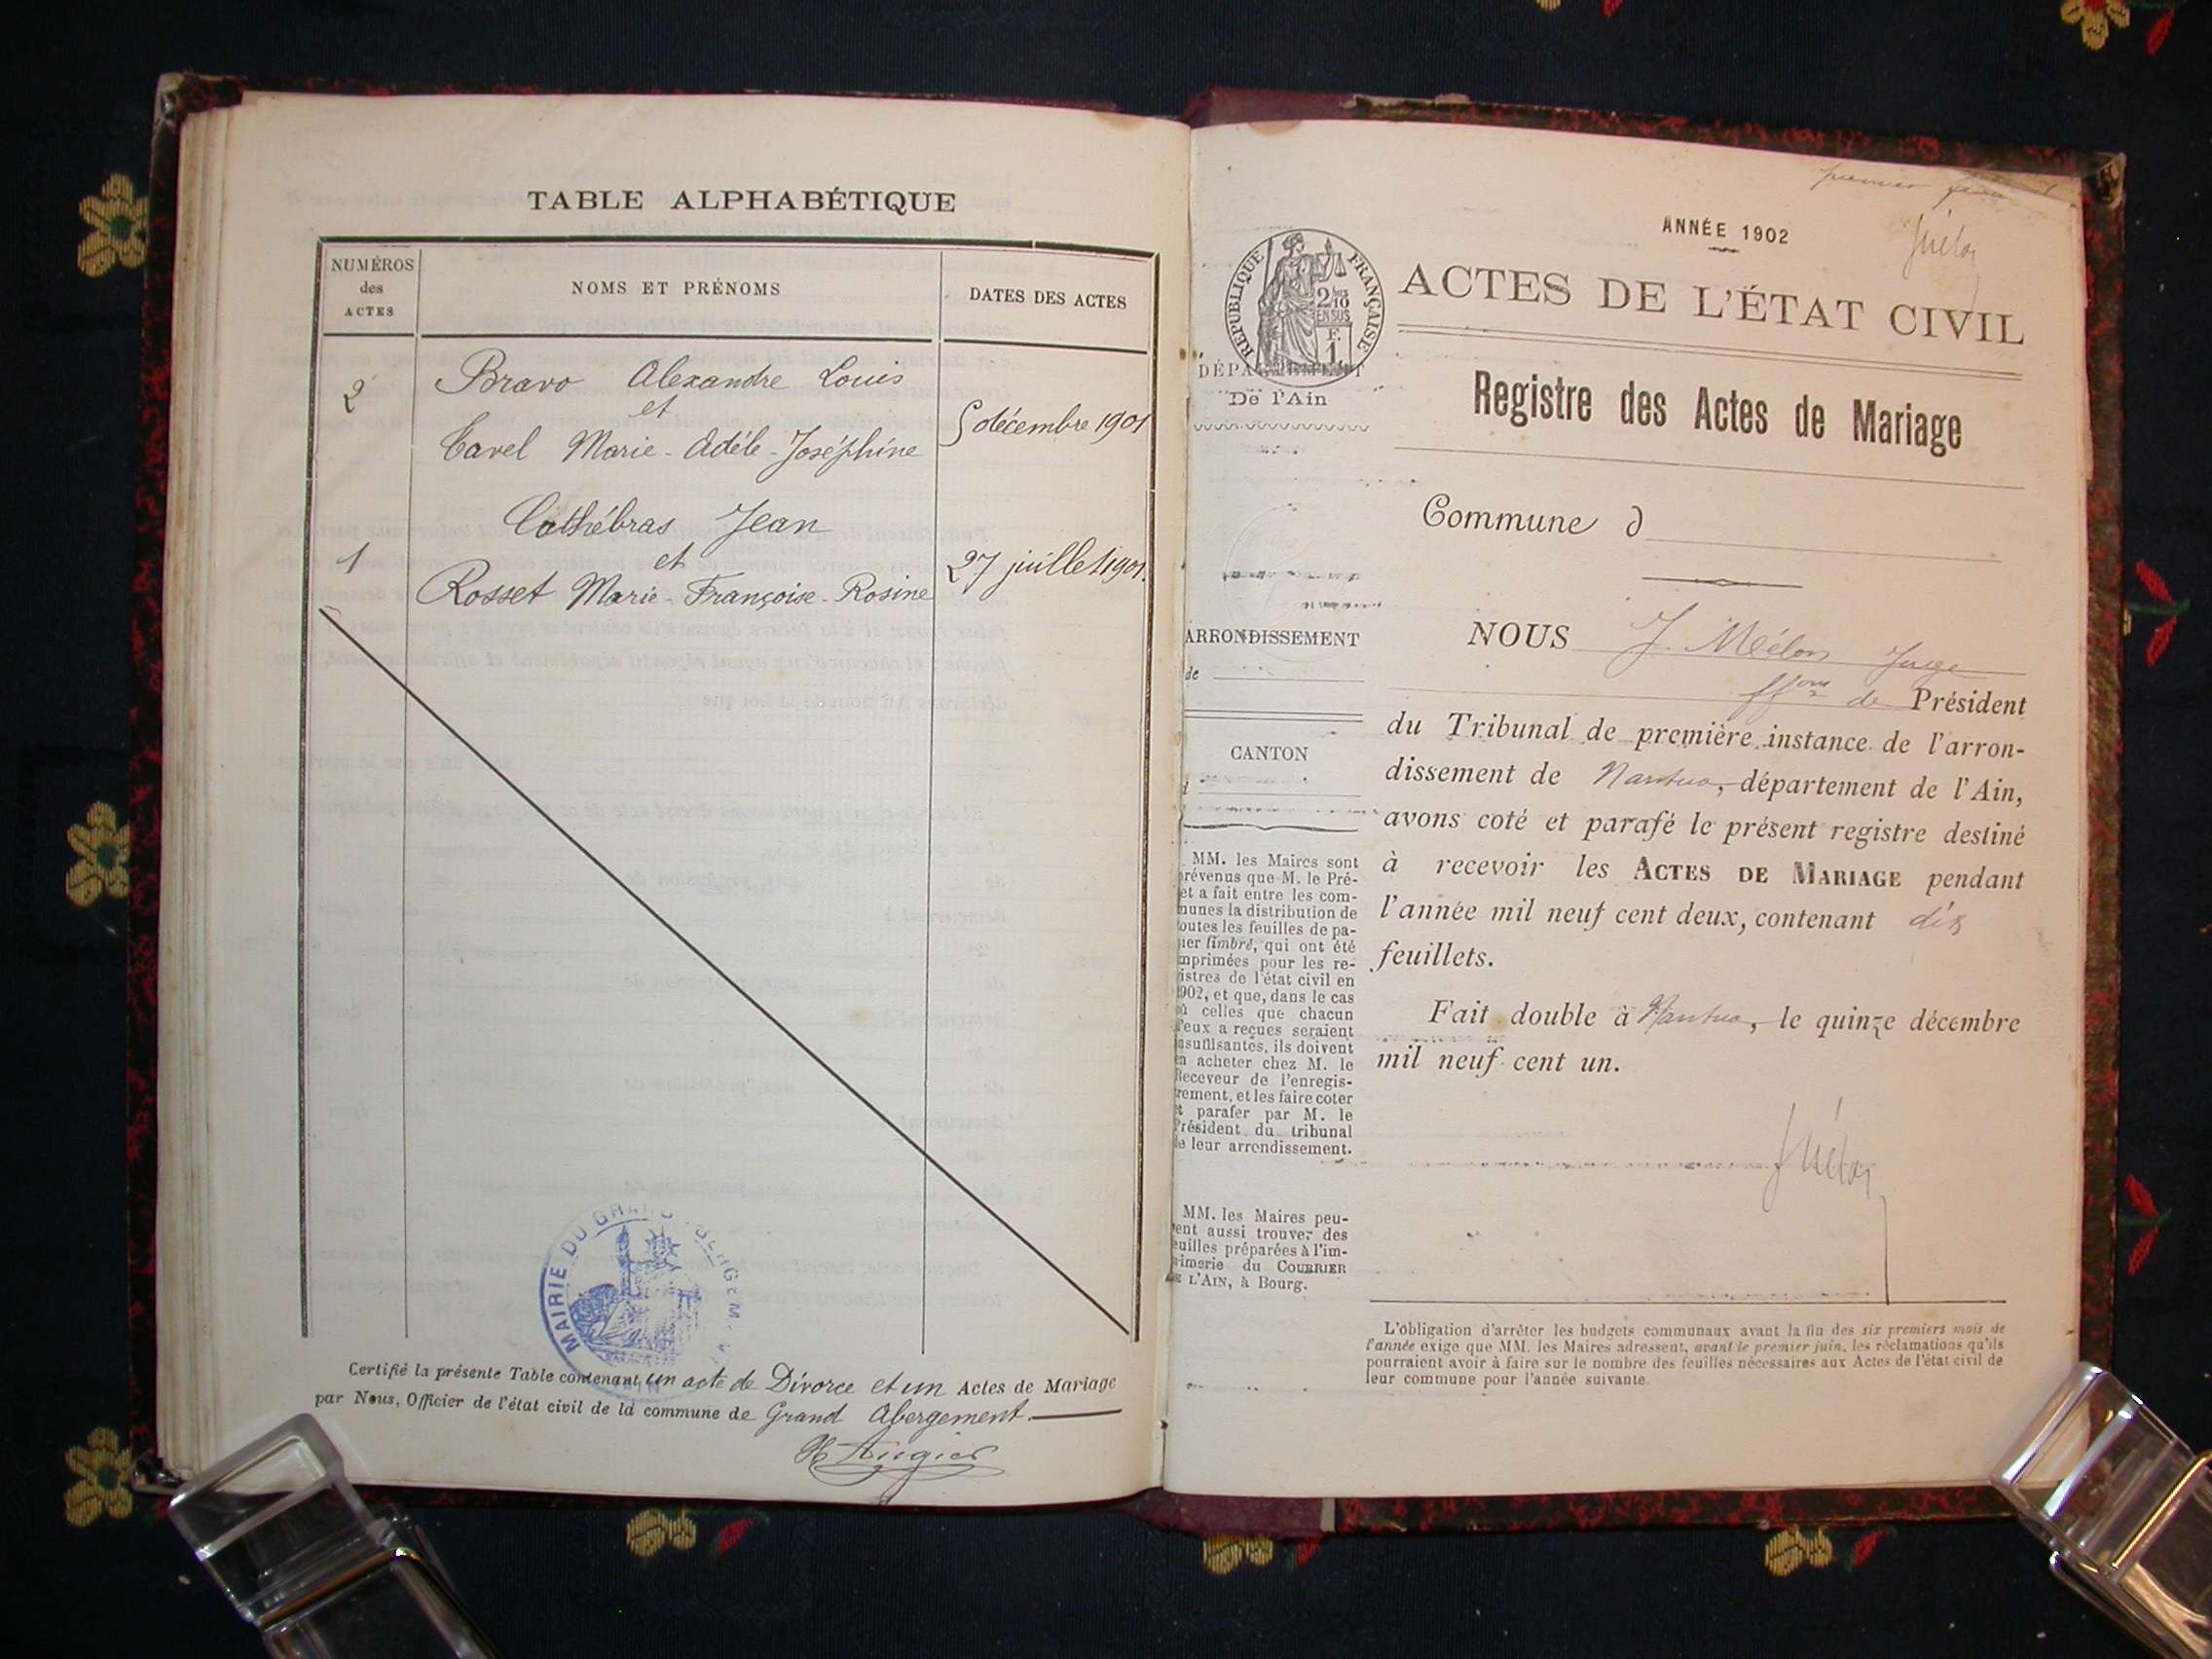 TABLE ALPHABÉTIQUE
NUMÉROS
des
ACTES
NOMS ET PRÉNOMS
DATES DES ACTES
2
Bravo Alexandre Louis
et
Cavel Marie-Adèle-Joséphine
5 décembre 1901
1
Cathébras Jean
et
Rosset Marie-Françoise-Rosine
27 juillet 1901.
MAIRIE DU GRAND
Certifié la présente Table contenant un acte de Divorce et un Actes de Mariage
par Nous, Officier de l'état civil de la commune de Grand Abergement.
H Augier
premier
ANNÉE 1902
ACTES DE L'ÉTAT CIVIL
Registre des Actes de Mariage
REPUBLIQUE FRANÇAISE
2/10
EN SUS
F.
1
DÉPARTEMENT
De l'Ain
ARRONDISSEMENT
de
CANTON
d
MM. les Maires sont
prévenus que M. le Pré-
fet a fait entre les com-
munes la distribution de
toutes les feuilles de pa-
pier timbré, qui ont été
imprimées pour les re-
gistres de l'état civil en
1902, et que, dans le cas
où celles que chacun
d'eux a reçues seraient
insuffisantes, ils doivent
en acheter chez M. le
Receveur de l'enregis-
trement, et les faire coter
et parafer par M. le
Président du tribunal
de leur arrondissement.
MM. les Maires peu-
vent aussi trouver des
feuilles préparées à l'im-
primerie du COURRIER
DE L'AIN, à Bourg.
Commune d
NOUS J. Mélon Juge
ffons de Président
du Tribunal de première instance de l'arron-
dissement de Nantua, département de l'Ain,
avons coté et parafé le présent registre destiné
à recevoir les ACTES DE MARIAGE pendant
l'année mil neuf cent deux, contenant dix
feuillets.
Fait double à Nantua, le quinze décembre
mil neuf cent un.
L'obligation d'arrêter les budgets communaux avant la fin des six premiers mois de
l'année exige que MM. les Maires adressent, avant le premier juin, les réclamations qu'ils
pourraient avoir à faire sur le nombre des feuilles nécessaires aux Actes de l'état civil de
leur commune pour l'année suivante.